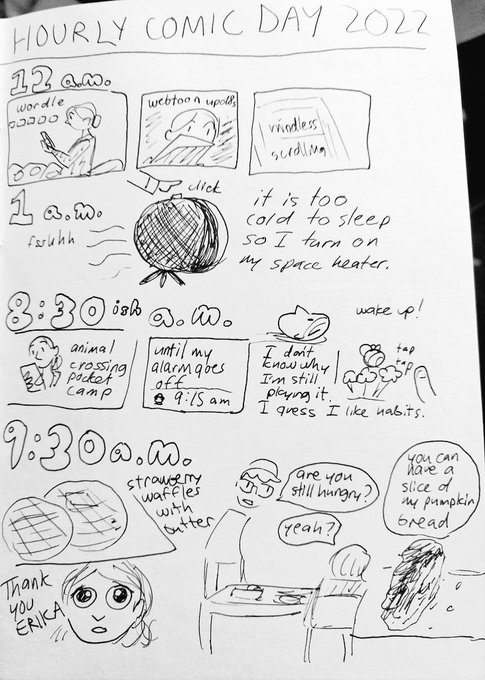 HOURLY COMIC DAY 2022
12 a.m.
wordle
webtoon
mindless
scrolling
1 a.m.
click
fsshhh
it is too
cold to sleep
so I turn on
my space heater.
8:30 ish a.m.
animal
crossing
pocket
camp
until my
alarm goes
off
9:15 am
wake up!
I don't
know why
I'm still
playing it.
I guess I like habits.
tap
tap
9:30 a.m.
strawberry
waffles
with
butter
Thank
you
ERIKA
are you
still hungry?
yeah?
you can
have a
slice of
my pumpkin
bread